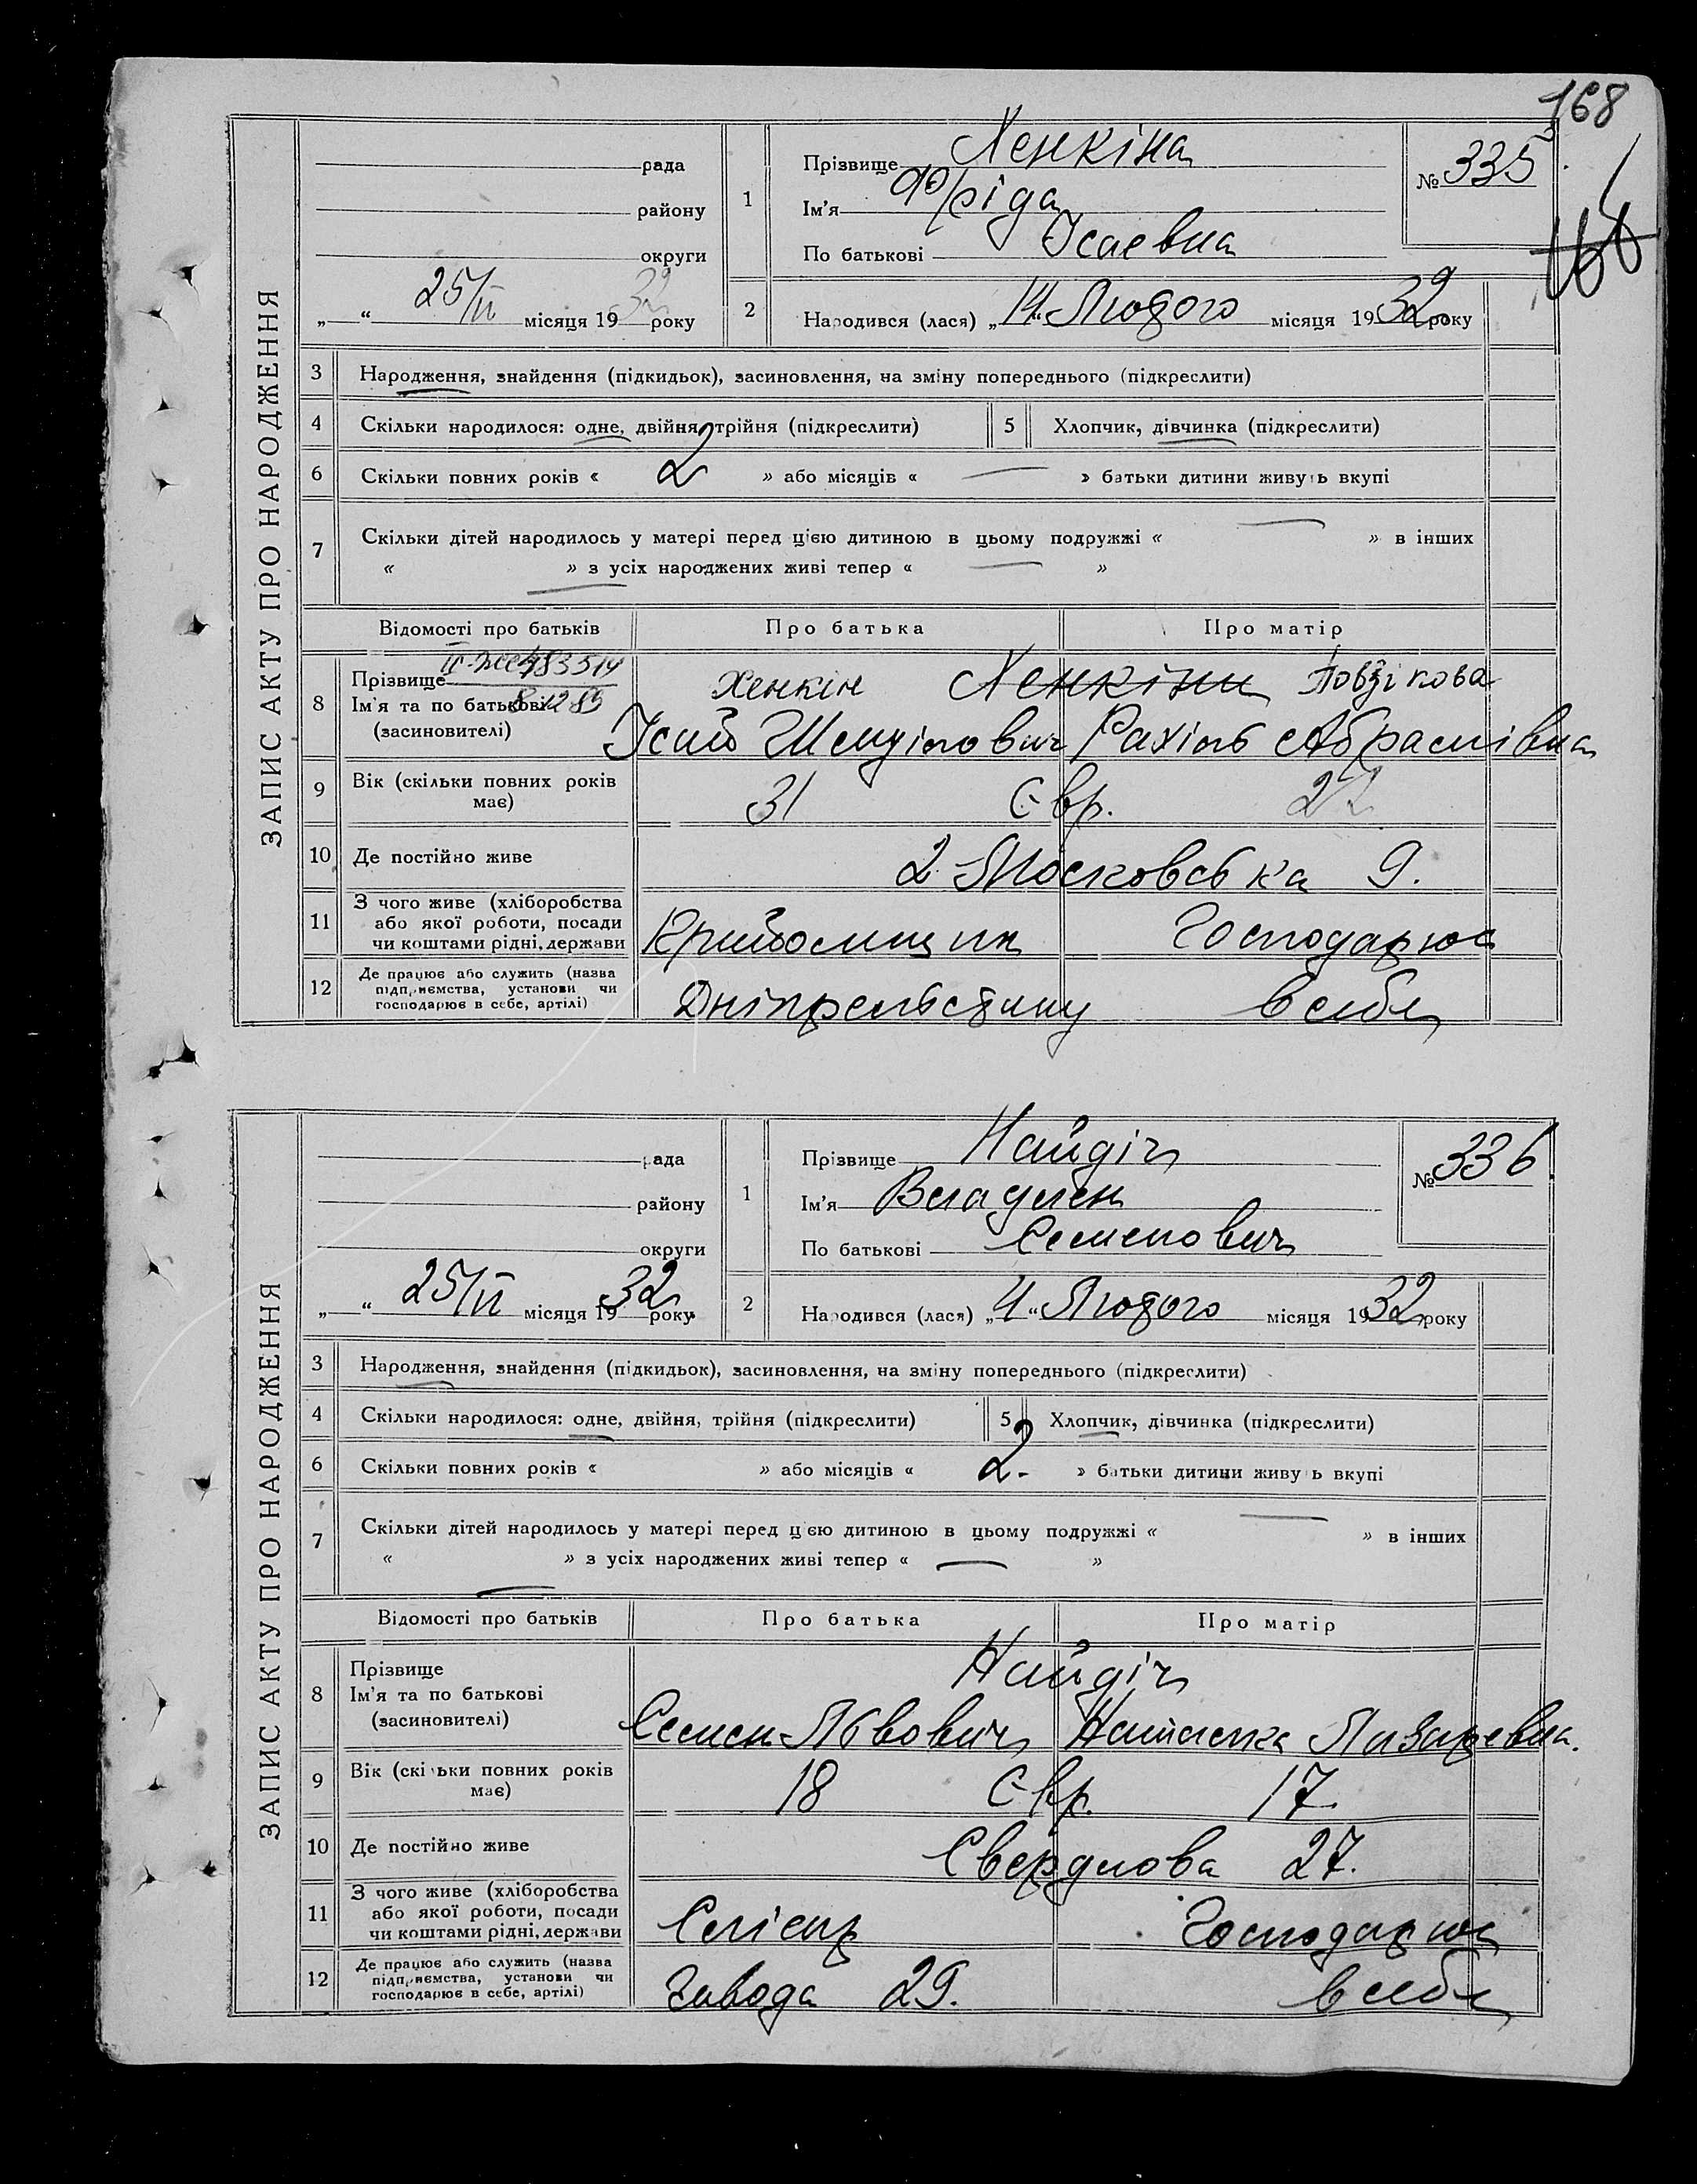 168
ЗАПИС АКТУ ПРО НАРОДЖЕННЯ
рада
району
округи
„ “ 25/II місяця 1932 року
1
Прізвище Хенкіна
Ім'я Фріда
По батькові Ісаевна
№ 335
2 Народився (лася) „14“ Лютого місяця 1932 року
3 Народження, знайдення (підкидьок), засиновлення, на зміну попереднього (підкреслити)
4 Скільки народилося: одне, двійня, трійня (підкреслити) 5 Хлопчик, дівчинка (підкреслити)
6 Скільки повних років « 2 » або місяців « — » батьки дитини живуть вкупі
7 Скільки дітей народилось у матері перед цією дитиною в цьому подружжі « — » в інших
« — » з усіх народжених живі тепер « — »
Відомості про батьків Про батька Про матір
8 Прізвище Хенкін Хенкіни Повзікова
Ім'я та по батькові
(засновителі) Ісай Шмуілович Рахіль Абрамівна
9 Вік (скільки повних років має) 31 Євр. 22
10 Де постійно живе 2 Московська 9.
11 З чого живе (хліборобства або якої роботи, посади чи коштами рідні, держави Господарює
12 Де працює або служить (назва підприємства, установи чи господарює в себе, артілі) в себе
ЗАПИС АКТУ ПРО НАРОДЖЕННЯ
рада
району
округи
„ “ 25/II місяця 1932 року
1
Прізвище Найдіч
Ім'я Владлен
По батькові Семенович
№ 336
2 Народився (лася) „4“ Лютого місяця 1932 року
3 Народження, знайдення (підкидьок), засиновлення, на зміну попереднього (підкреслити)
4 Скільки народилося: одне, двійня, трійня (підкреслити) 5 Хлопчик, дівчинка (підкреслити)
6 Скільки повних років « » або місяців « 2 - » батьки дитини живуть вкупі
7 Скільки дітей народилось у матері перед цією дитиною в цьому подружжі « — » в інших
« — » з усіх народжених живі тепер « — »
Відомості про батьків Про батька Про матір
8 Прізвище Найдіч
Ім'я та по батькові
(засиновителі) Семен Львович Лазаревна.
9 Вік (скільки повних років має) 18 Євр. 17
10 Де постійно живе Свердлова 27.
11 З чого живе (хліборобства або якої роботи, посади чи коштами рідні, держави Слієар Господарює
12 Де працює або служить (назва підприємства, установи чи господарює в себе, артілі) Завода 29. в себе